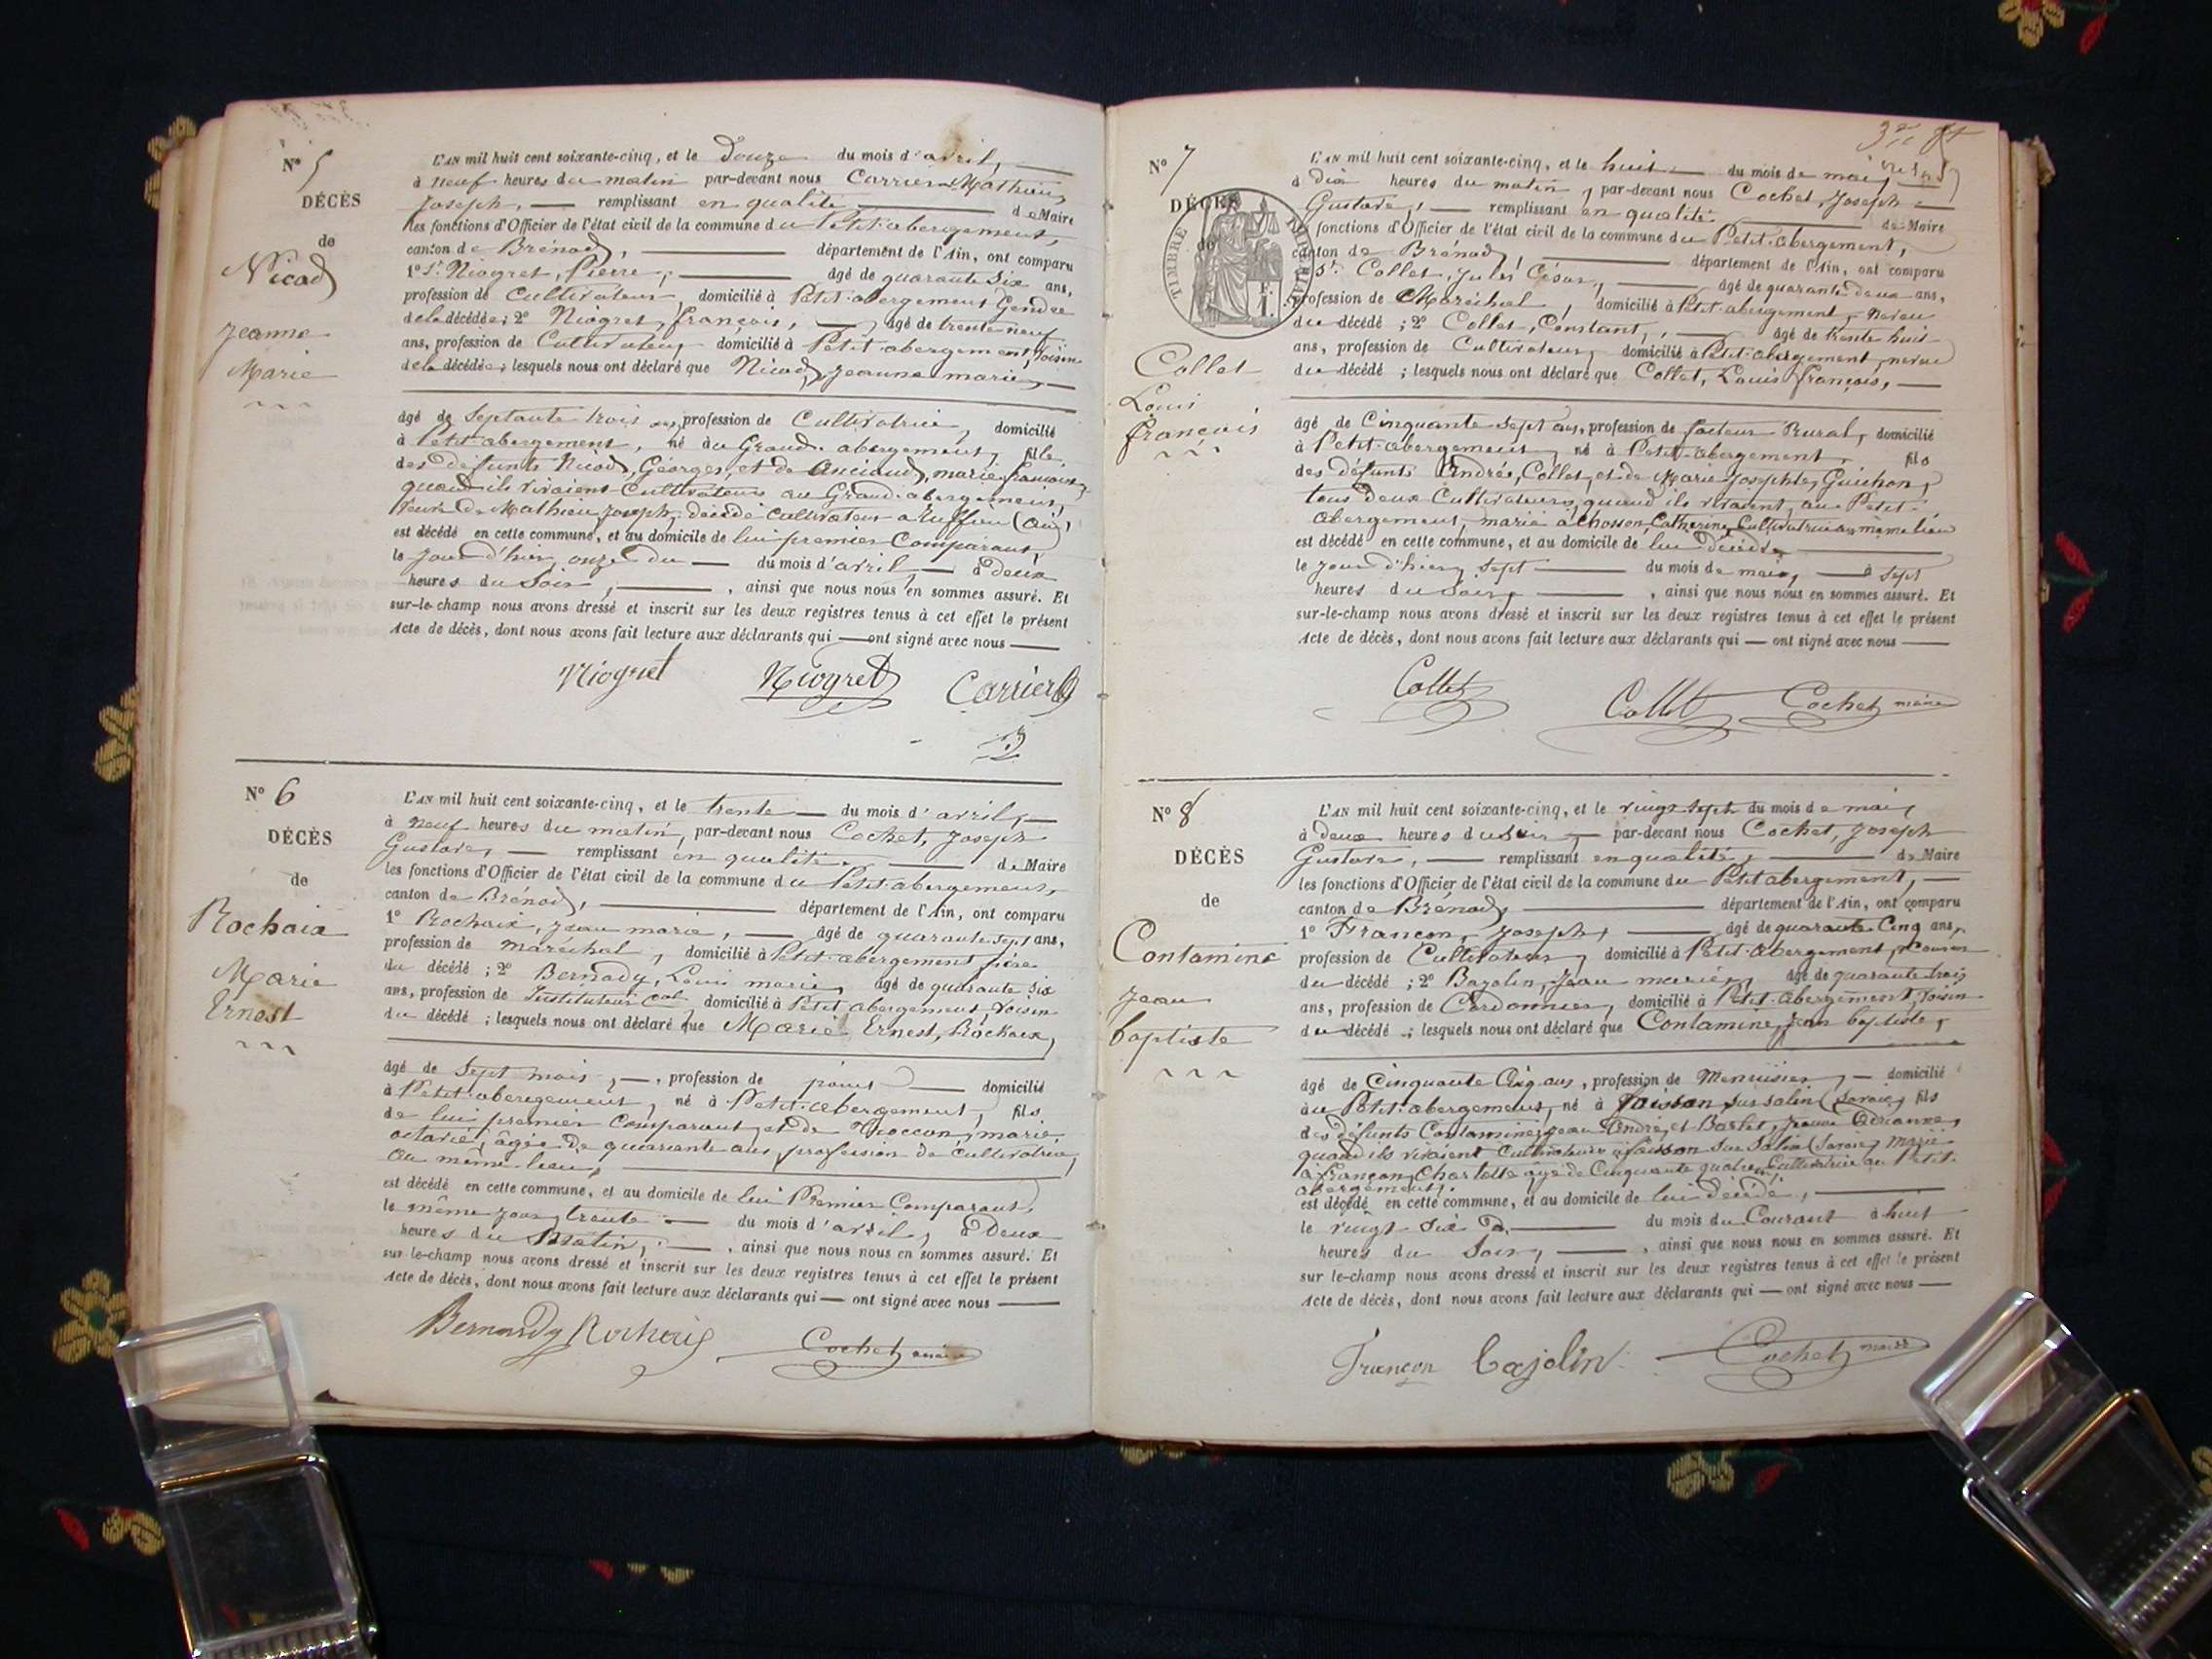 Nº 5
DÉCÈS
de
Nicod
Jeanne
Marie
L'AN mil huit cent soixante-cinq, et le Douze du mois d'avril,
à neuf heures du matin par-devant nous Carrier Mathieu
Joseph, remplissant en qualité de Maire
les fonctions d'Officier de l'état civil de la commune du Petit-abergement,
canton de Brénod, département de l'Ain, ont comparu
1º Sr Niogret, Pierre, âgé de quarante six ans,
profession de Cultivateur, domicilié à Petit-abergement Gendre
de la décédée; 2º Niogret, françois, âgé de trente neuf
ans, profession de Cultivateur, domicilié à Petit-abergement, voisin
de la décédée; lesquels nous ont déclaré que Nicod, Jeanne marie,
âgé de Septante trois ans, profession de Cultivatrice, domicilié
à Petit-abergement, né au Grand-abergement, fille
des défunts Nicod, Georges, et de Anciaud, marie françoise,
quand ils vivaient Cultivateurs au Grand-abergement,
Veuve de Mathieu Joseph, décédé cultivateur a Ruffieu (ain)
est décédé en cette commune, et au domicile de lui premier Comparant,
le jour d'hier onze du du mois d'avril à Deux
heures du Soir, ainsi que nous nous en sommes assuré. Et
sur-le-champ nous avons dressé et inscrit sur les deux registres tenus à cet effet le présent
Acte de décès, dont nous avons fait lecture aux déclarants qui ont signé avec nous
Niogret Niogret Carrier
Nº 6
DÉCÈS
de
Rochaix
Marie
Ernest
L'AN mil huit cent soixante-cinq, et le trente du mois d'avril,
à neuf heures du matin, par-devant nous Cochet, Joseph
Gustave, remplissant en qualité de Maire
les fonctions d'Officier de l'état civil de la commune du Petit-abergement,
canton de Brénod, département de l'Ain, ont comparu
1º Rochaix, Jean marie, âgé de quarante sept ans,
profession de maréchal, domicilié à Petit-abergement père
du décédé; 2º Bernady, Louis marie, âgé de quarante six
ans, profession de Instituteur cal domicilié à Petit abergement, voisin
du décédé; lesquels nous ont déclaré que Marie Ernest, Rochaix,
âgé de Sept mois, profession de domicilié
à Petit-aberegement, né à Petit-abergement, fils
de lui premier Comparant et de marie
octavie, âgée de quarante ans, profession de cultivatrice,
au même lieu,
est décédé en cette commune, et au domicile de lui Premier Comparant,
le même jour trente du mois d'avril, à Deux
heures du Matin, ainsi que nous nous en sommes assuré. Et
sur-le-champ nous avons dressé et inscrit sur les deux registres tenus à cet effet le présent
Acte de décès, dont nous avons fait lecture aux déclarants qui ont signé avec nous
Bernardy Rochaix Cochet maire
3
Nº 7
DÉCÈS
de
TIMBRE IMPÉRIAL
Collet
Louis
françois
L'AN mil huit cent soixante-cinq, et le huit du mois de mai,
à Dix heures du matin, par-devant nous Cochet, Joseph
Gustave, remplissant en qualité de Maire
les fonctions d'Officier de l'état civil de la commune du Petit-abergement,
canton de Brénod, département de l'Ain, ont comparu
Sr Collet, Jules César, âgé de quarante deux ans,
profession de Maréchal, domicilié à Petit-abergement, neveu
du décédé; 2º Collet, Constant, âgé de trente huit
ans, profession de Cultivateur, domicilié à Petit-abergement, neveu
du décédé; lesquels nous ont déclaré que Collet, Louis françois,
âgé de Cinquante sept ans, profession de facteur Rural, domicilié
à Petit-abergement, né à Petit-abergement fils
des défunts André, Collet, et de Marie Josephte, Guichon,
tous deux Cultivateurs, quand ils vivaient, au Petit-
abergement, marié à Chosson Catherine Cultivatrice au même lieu
est décédé en cette commune, et au domicile de lui décédé,
le jour d'hier, sept du mois de mai, à sept
heures du soir, ainsi que nous nous en sommes assuré. Et
sur-le-champ nous avons dressé et inscrit sur les deux registres tenus à cet effet le présent
Acte de décès, dont nous avons fait lecture aux déclarants qui ont signé avec nous
Collet Collet Cochet maire
Nº 8
DÉCÈS
de
Contamine
Jean
baptiste
L'AN mil huit cent soixante-cinq, et le vingt sept du mois de mai,
à deux heures du soir par-devant nous Cochet, Joseph
Gustave, remplissant en qualité, de Maire
les fonctions d'Officier de l'état civil de la commune du Petit abergement,
canton de Brénod, département de l'Ain, ont comparu
1º Françon, Joseph, âgé de quarante Cinq ans,
profession de Cultivateur, domicilié à Petit-Abergement, Cousin
du décédé; 2º Bajolin, Jean marie, âgé de quarante trois
ans, profession de Cordonnier, domicilié à Petit-abergement, voisin
du décédé; lesquels nous ont déclaré que Contamine, Jean baptiste,
âgé de Cinquante Cinq ans, profession de Menuisier, domicilié
au Petit-abergement, né à Faisson sur salin (Savoie) fils
des défunts Contamine, Jean André, et Barlet, Jeanne
quand ils vivaient Cultivateurs à faisson sur Salin (Savoie) Marié
à françon, Charlotte âgé de Cinquante quatre, Cultivatrice au Petit-
abergement.
est décédé en cette commune, et au domicile de lui décédé,
le vingt six du mois du Courant à huit
heures du Soir, ainsi que nous nous en sommes assuré. Et
sur le-champ nous avons dressé et inscrit sur les deux registres tenus à cet effet le présent
Acte de décès, dont nous avons fait lecture aux déclarants qui ont signé avec nous
Françon Bajolin Cochet maire